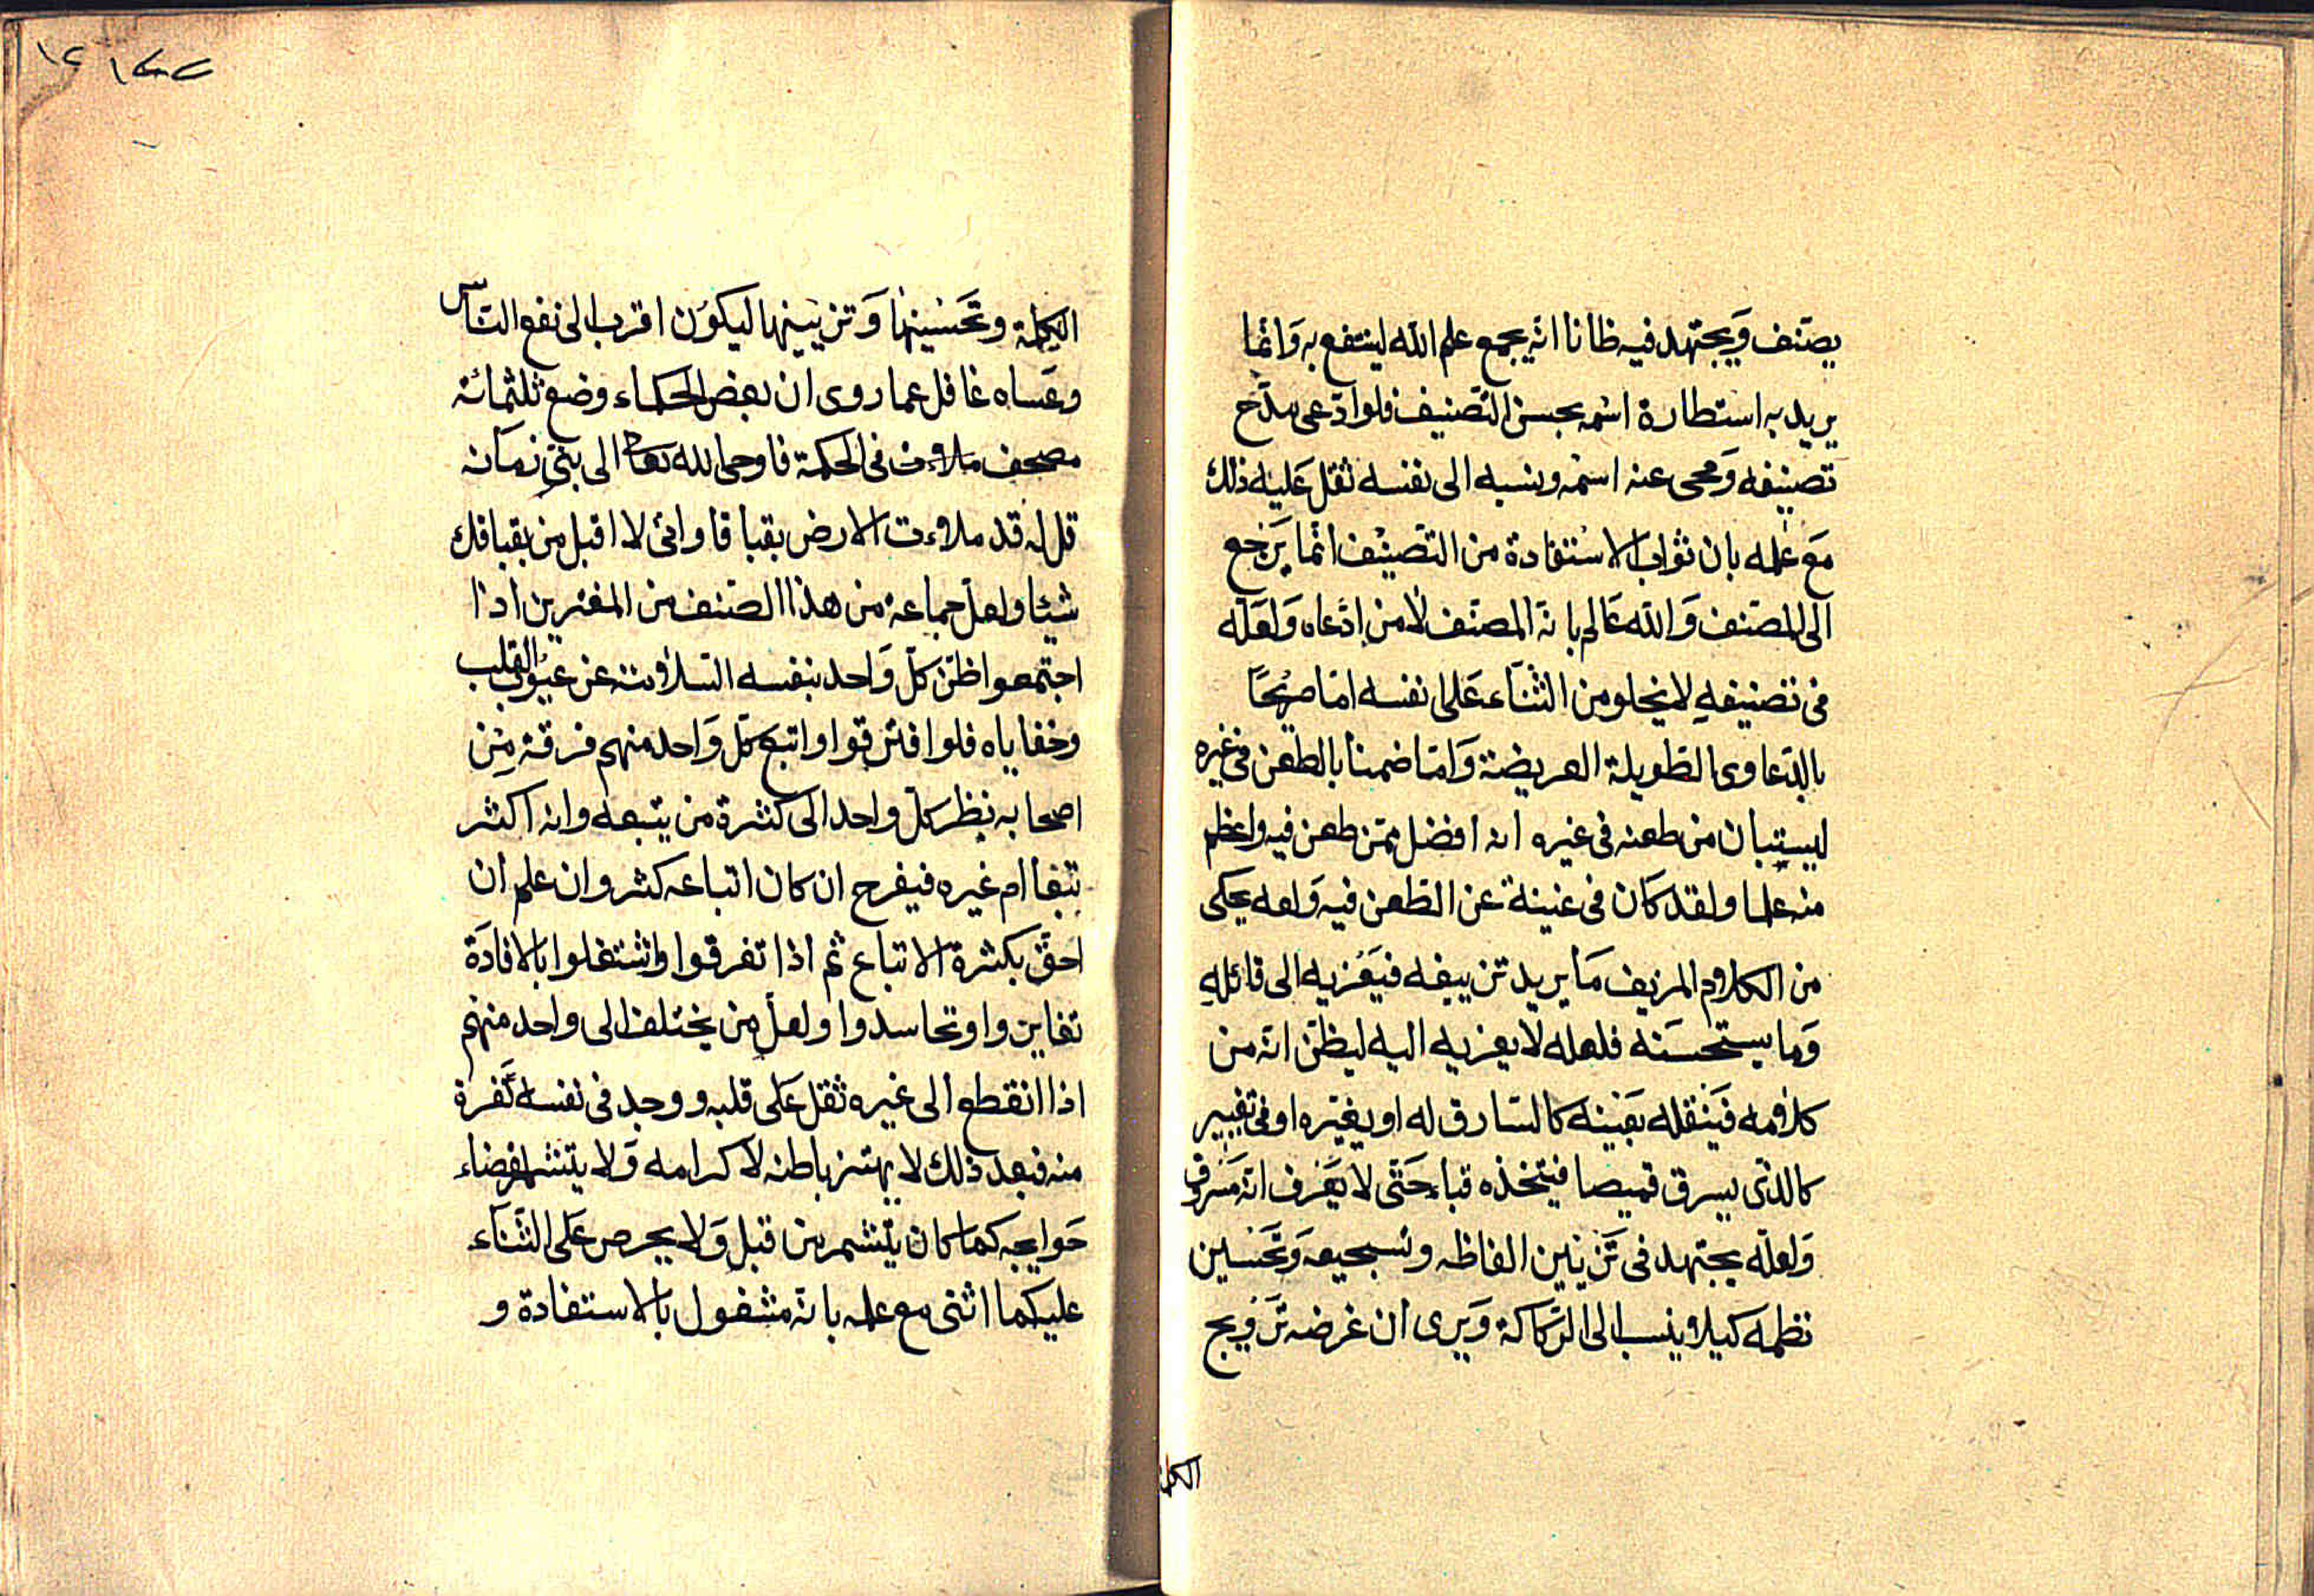 يصنف وَيجتهد فيه ظانا انه يجمع علم الله لينتفع به وَانما
يريد به استطارة اسمه بحسن التصنيف فلو ادّعى مدّع
تصنيفه وَمحى عنه اسمه ونسبه الى نفسه ثقل عَليه ذلك
مَع علمه بان ثواب الاستفادة من التصنيف انما يَرجع
الى المصنف وَالله عَالم بانه المصنف لا من ادّعاه وَلعَله
فى تصنيفهِ لا يخلو من الثنآء عَلى نفسه اما صريحًا
بالدّعاوى الطّويلة العريضة وَاما ضمنا بالطعن فى غيره
ليستبان من طعنه فى غيره انه افضل ممّن طعن فيه واعظم
منه علما ولقد كَان فى غنية عن الطّعن فيه وَلعه يحكى
من الكلام المزيف مَا يريد تزييفه فيَعْزيه الى قائلهِ
وَما يستحسَنه فلعله لا يعزيه اليه ليظنّ انه من
كلامه فَينقله بعَينه كالسّارق له او يغيّره او فى تغيير
كالذى يسرق قميصا فيتخذه قباء حَتّى لا يَعْرف انه مَسروق
وَلعلّه يجتهد فى تَزيين الفاظه وتسجيعه وَتَحْسين
نظمه كيلا ينسب الى الرّكاكة وَيرى ان غرضه تَرويج
الكل
١٢ ١
الكلمة وتَحَسْينهَا وَتزيينها ليكوَن اقرب الى نفع النّاس
وعَساه غافل عما روى ان بعض الحكماء وضع ثلثمائة
مصحف ملات فى الحكمة فاوحى الله تعا الى بنىّ زمَانه
قل له قد ملات الارض بقباقا وانى لا اقبل من بقباقك
شيئا ولعلّ جماعة من هذا الصّنف من المغترين اذا
اجتمعوا ظنّ كلّ وَاحد بنفسه السّلامة عن عيُوب القلب
وخفاياه فلو افترقوا واتبع كلّ وَاحد منهم فرقة مِن
اصحابه نظر كلّ واحد الى كثرة من يتبعه وانه اكثر
تبعا ام غيره فيفرح ان كان اتباعه كثر وان علم ان
احقّ بكثرة الاتباع ثم اذا تفرقوا واشتغلوا بالافادَة
تغايروا وتحاسدوا ولعل مِن يختلف الى واحد منهم
اذا انقطع الى غيره ثقل عَلى قلبه ووجد فى نفسه نَفرة
منه فبعد ذلك لا يهتز باطنه لاكرامه وَلا يتشمر لقضاء
حَوايجه كما كان يتشمر من قبل وَلا يحرص عَلى الثّنآء
عليه كما اثنى مع علمه بانه مشغول بالاستفادة و